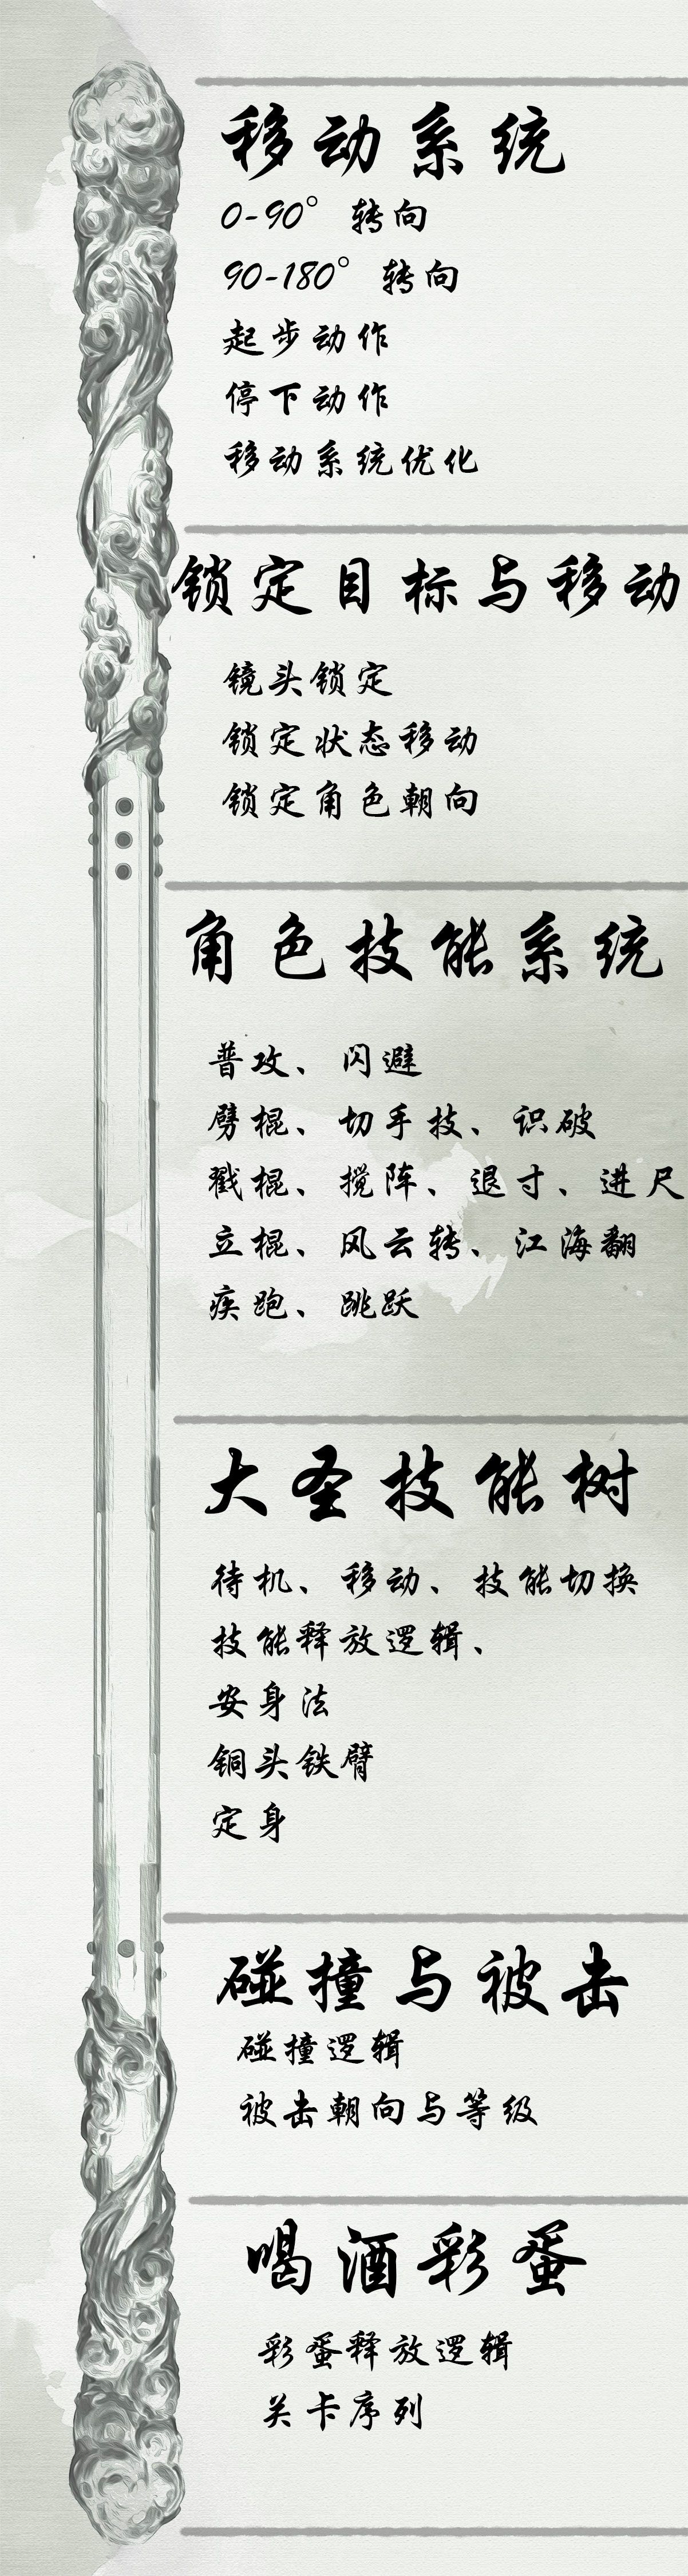 移动系统
0-90° 转向
90-180° 转向
起步动作
停下动作
移动系统优化
锁定目标与移动
镜头锁定
锁定状态移动
锁定角色朝向
角色技能系统
普攻、闪避
劈棍、切手技、识破
戳棍、搅阵、退寸、进尺
立棍、风云转、江海翻
疾跑、跳跃
大圣技能树
待机、移动、技能切换
技能释放逻辑、
安身法
铜头铁臂
定身
碰撞与被击
碰撞逻辑
被击朝向与等级
喝酒彩蛋
彩蛋释放逻辑
关卡序列